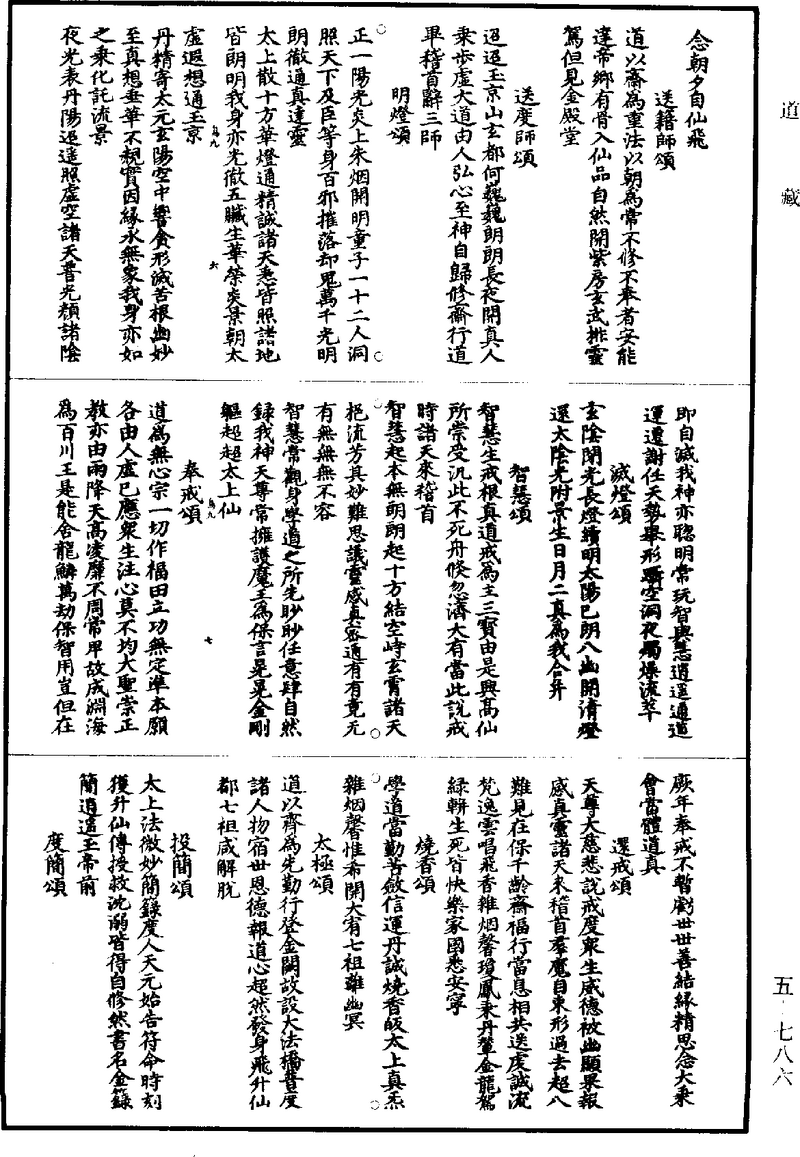 道藏
念朝夕自仙飛
送籍師頌
道以齋為重法以朝為常不修不奉者安能
達帝鄉有骨入仙品自然開紫房玄武排靈
駕但見金殿堂
送度師頌
迢迢玉京山玄都何巍巍朗朗長夜開真人
乘步虛大道由人弘心至神自歸修齋行道
畢稽首辭三師
明燈頌
正一陽光炎上朱烟開明童子一十二人洞
照天下及臣等身百邪摧落却鬼萬千光明
朗徹通真達靈
太上散十方華燈通精誠諸天悉皆照諸地
皆朗明我身亦光徹五臟生華榮炎景朝太
虛遐想通玉京
丹精寄太元玄陽空中響貪形滅苦根幽妙
至真想垂華不覩實因緣永無家我身亦如
之乘化託流景
夜光表丹陽迢遥照虛空諸天普光頹諸陰
即自滅我神亦聰明常玩智與慧逍遥通道
運遷謝任天勢舉形蹑空洞夜燭燥流萃
滅燈頌
玄陰閉光長燈續明太陽已朗八幽開清燈
還太陰光附景生日月二真為我合并
智慧頌
智慧生戒根真道戒為主三寶由是興高仙
所崇受汎此不死舟倏忽濟大有當此說戒
時諸天來稽首
智慧起本無朗朗起十方結空峙玄霄諸天
挹流芳其妙難思議靈感真寥通有有竟无
有無無無不容
智慧常觀身學道之所先眇眇任意肆自然
録我神天尊常擁護魔王為保言晃晃金剛
軀超超太上仙
奉戒頌
道為無心宗一切作福田立功無定準本願
各由人虛已應衆生注心莫不均大聖崇正
教亦由雨降天高凌靡不周常卑故成淵海
為百川王是能舍龍鱗萬劫保智用豈但在
厥年奉戒不暫虧世世善結緣精思念大乘
會當體道真
還戒頌
天尊大慈悲説戒度衆生威德被幽顯果報
感真靈諸天來稽首羣魔自束形過去超八
難見在保千齡齋福行當息相共送虔誠流
梵逸雲唱飛香雜烟馨瓊鳳秉丹輦金龍駕
緑軿生死皆快樂家國悉安寧
燒香頌
學道當勤苦斂信運丹誠燒香皈太上真炁
雜烟馨惟希開大宥七祖離幽冥
太極頌
道以齊為先勤行登金闕故設大法橋普度
諸人物宿世恩德報道心超然發身飛升仙
都七祖咸解脫
投簡頌
太上法微妙簡籙度人天元始告符命時刻
獲升仙傳授救沈溺皆得自修然書名金籙
簡逍遥玉帝前
度簡頌
五·七八六